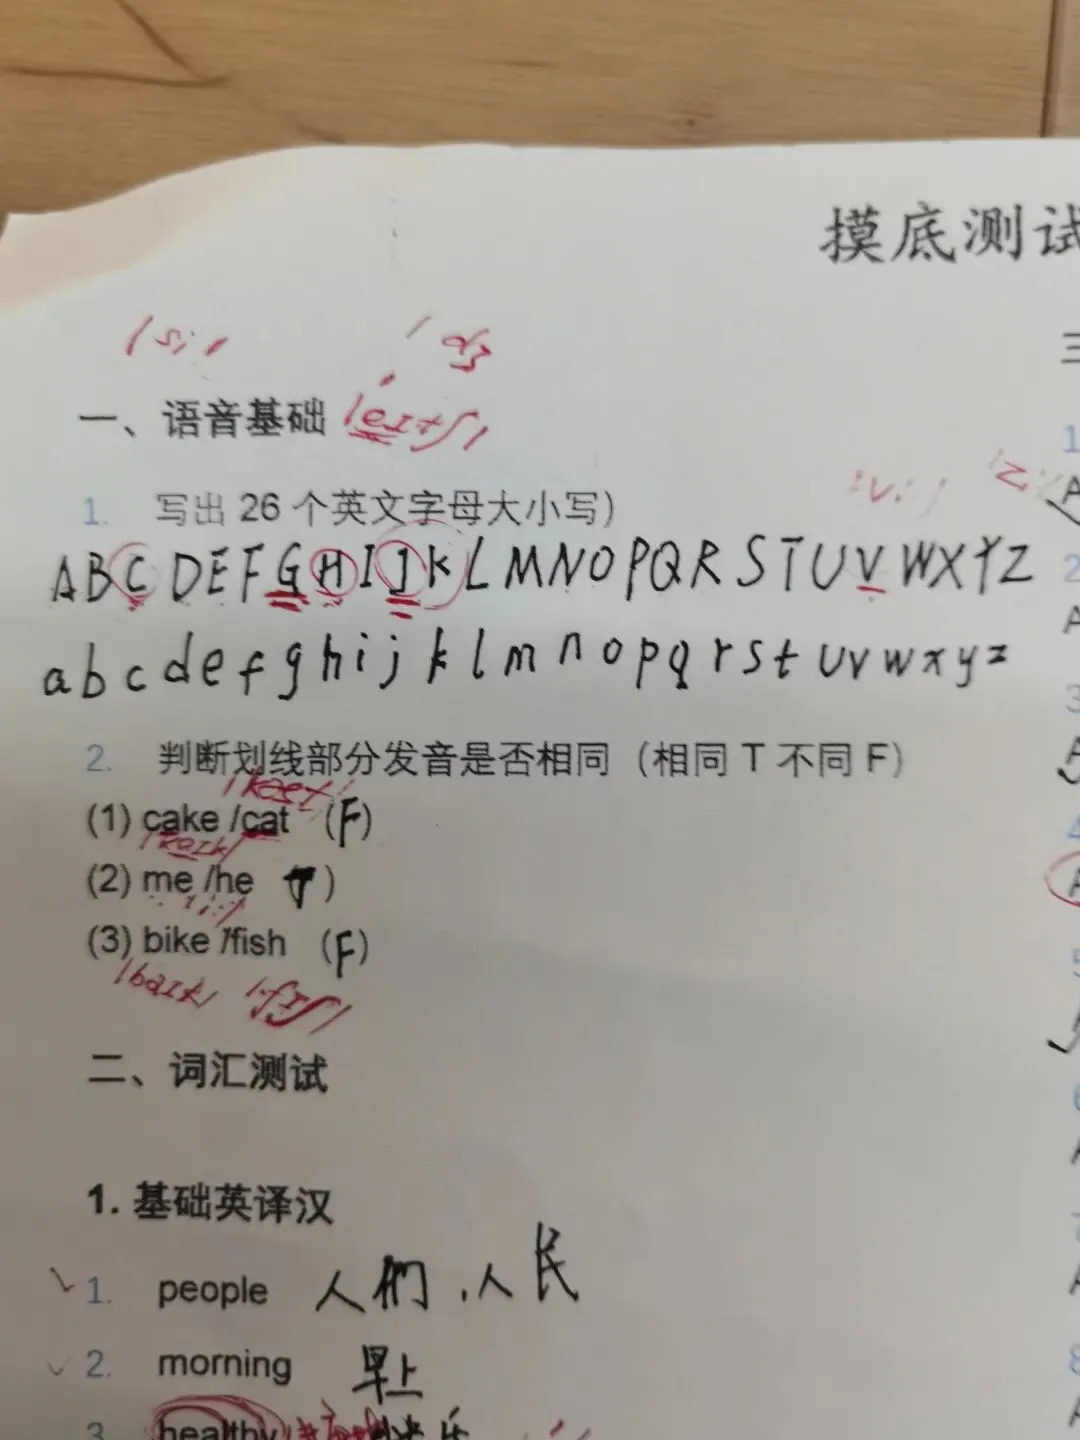 摸底测试
/si:/
/dʒ
一、语音基础 /eɪtʃ/
1. 写出 26 个英文字母大小写）
/vi:/
A B C D E F G H I J K L M N O P Q R S T U V W X Y Z
a b c d e f g h i j k l m n o p q r s t u v w x y z
2. 判断划线部分发音是否相同（相同 T 不同 F）
(1) cake /cat (F)
(2) me /he (T)
(3) bike /fish (F)
/baɪk/ /fɪʃ/
二、词汇测试
1. 基础英译汉
1. people 人们、人民
2. morning 早上
3. healthy